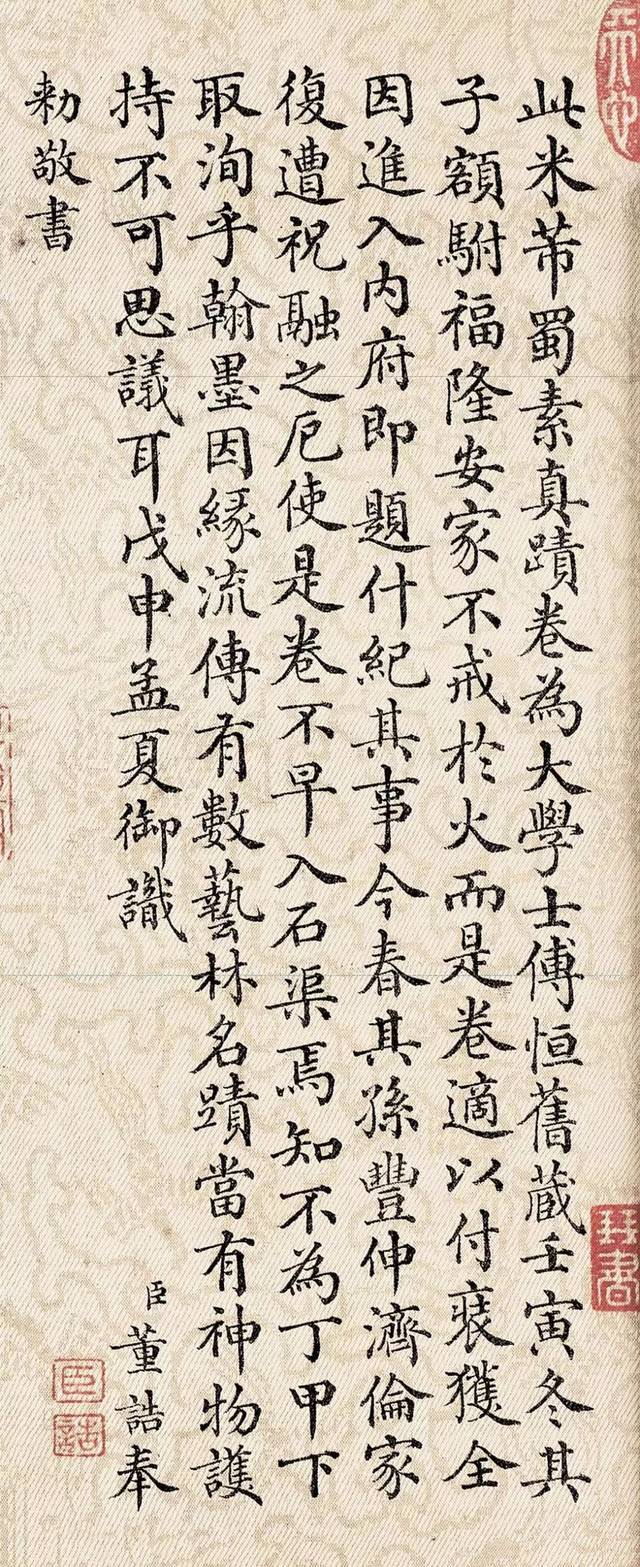 此米芾蜀素真蹟卷為大學士傅恒舊蔵壬寅冬其
子額駙福隆安家不戒於火而是卷適以付裝獲全
因進入內府即題什紀其事今春其孫豐伸濟倫家
復遭祝融之厄使是卷不早入石渠焉知不為丁甲下
取洵乎翰墨因緣流傳有數藝林名蹟當有神物護
持不可思議耳戊申孟夏御識
臣董誥奉
勅敬書
臣
誥
琴書